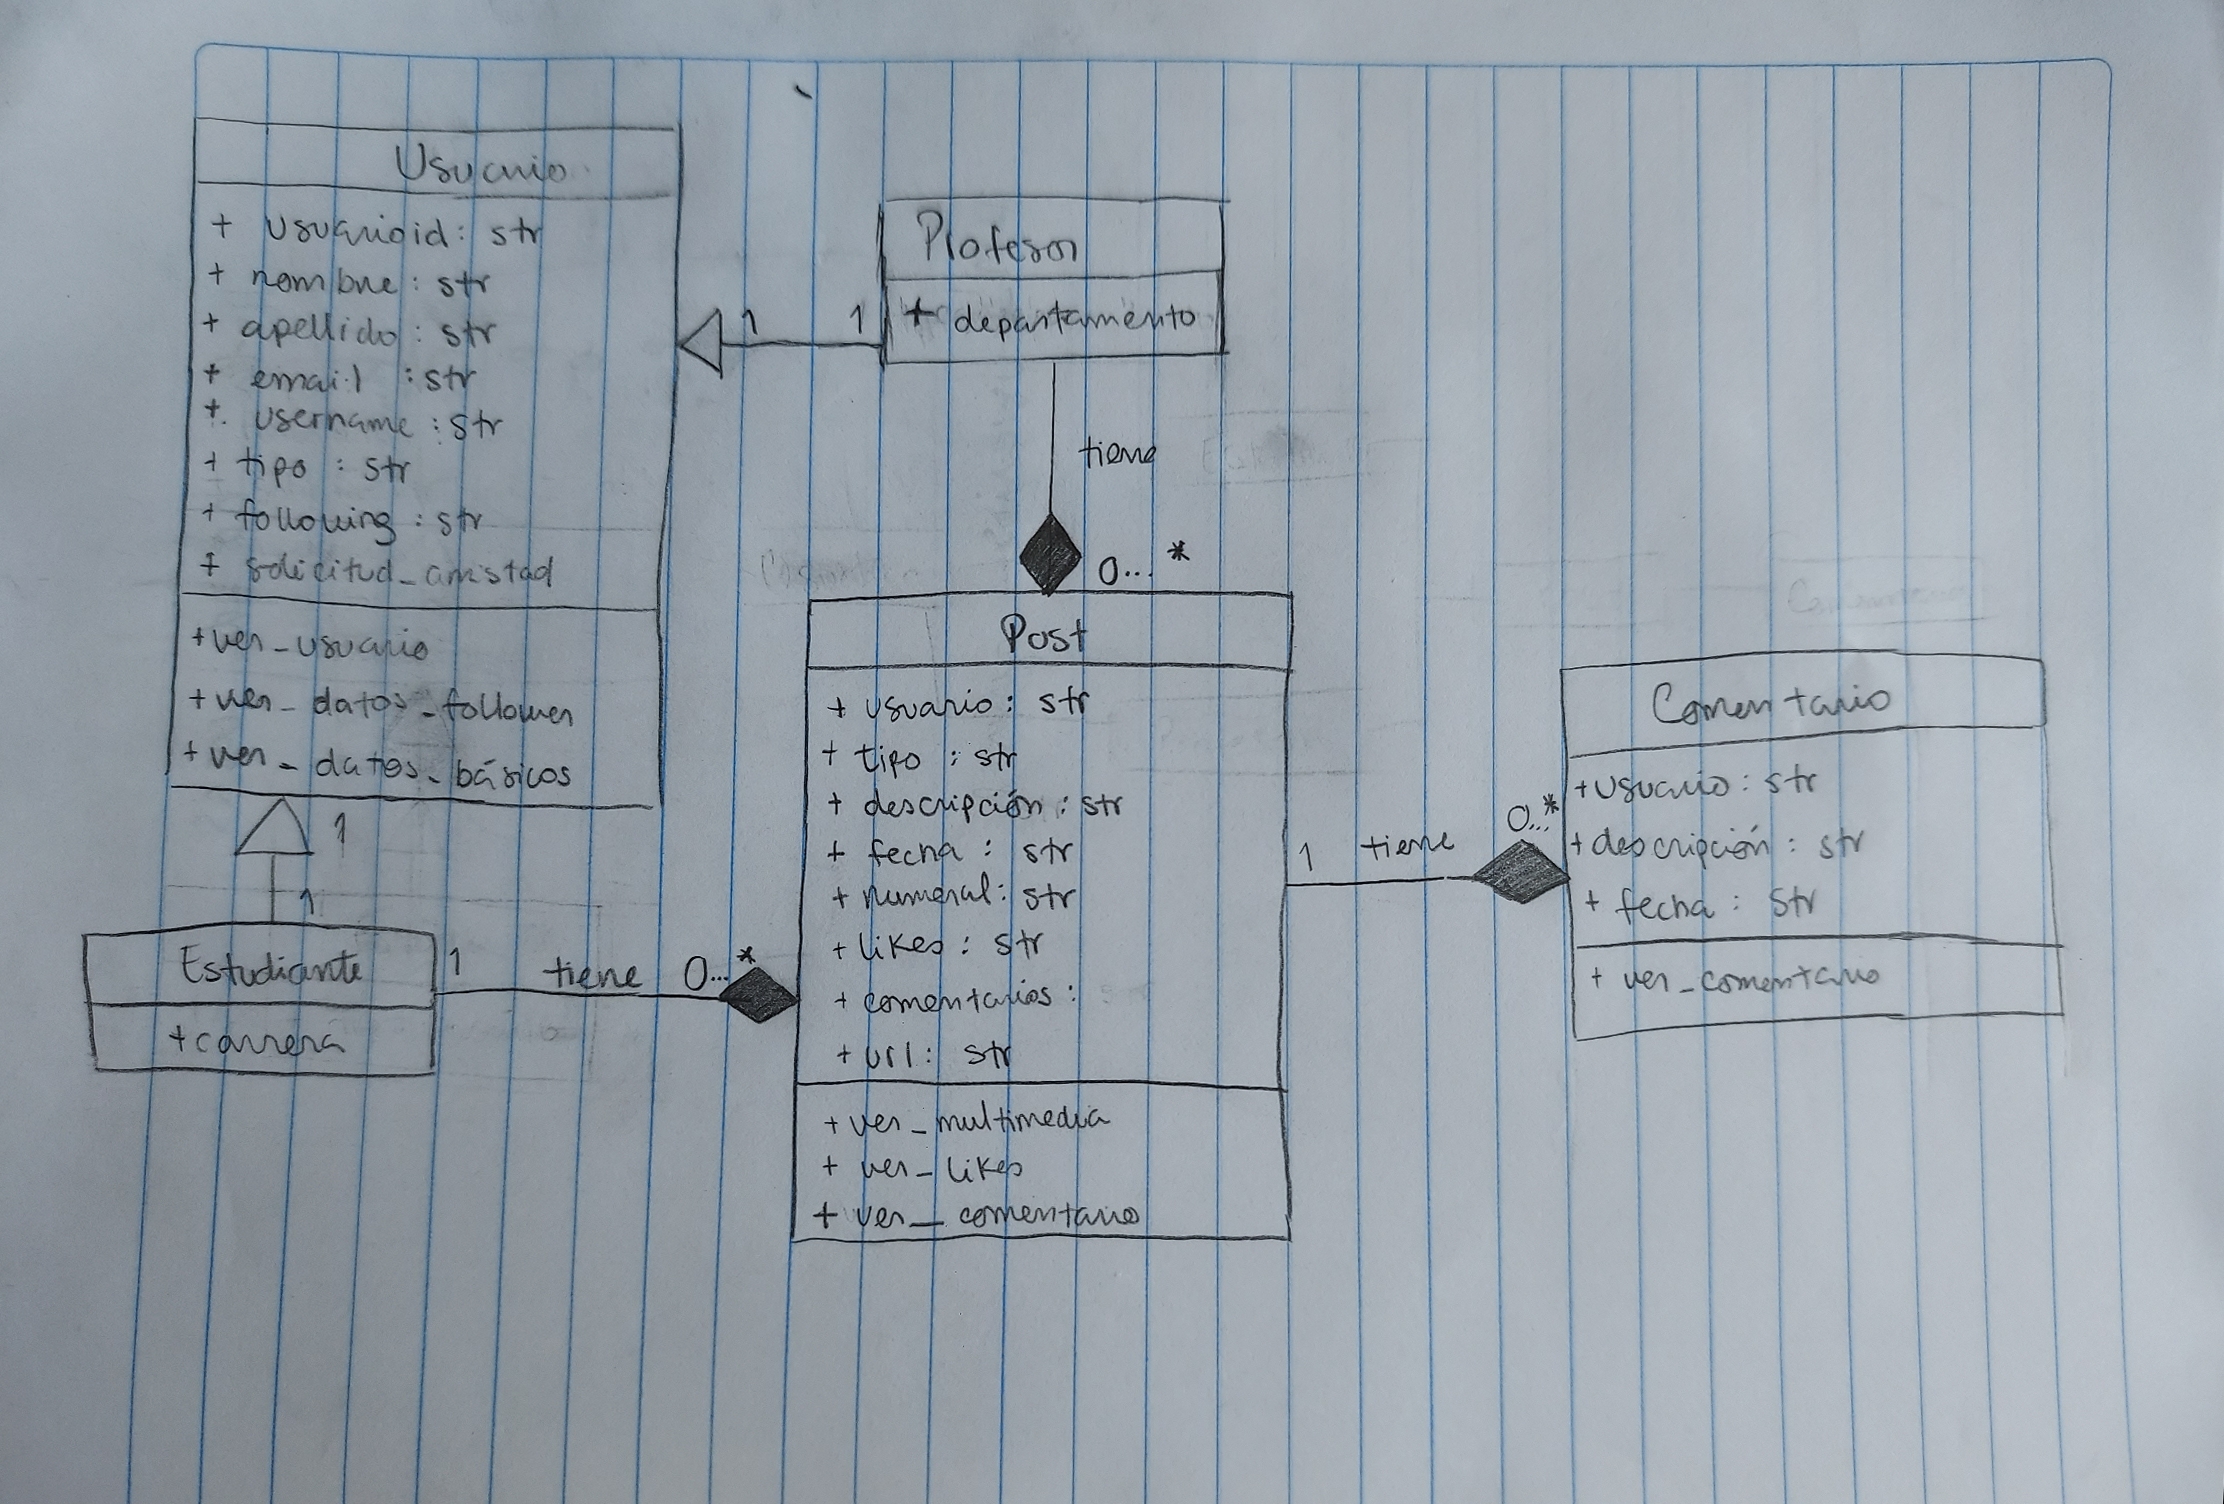 Usuario
+ usuarioid: str
+ nombre: str
+ apellido: str
+ email : str
+ username : str
+ tipo : str
+ following : str
+ solicitud_amistad
+ver_usuario
+ver_datos_follower
+ver_datos_básicos
1
1
1
1
Profesor
+ departamento
tiene
0...*
Estudiante
+carrera
1
tiene
0...*
Post
+ usuario: str
+ tipo : str
+ descripción : str
+ fecha : str
+ numeral: str
+ likes : str
+ comentarios :
+ url: str
+ ver_multimedia
+ ver_likes
+ ver_comentario
1
tiene
0...*
Comentario
+usuario: str
+descripción: str
+ fecha : str
+ ver_comentario